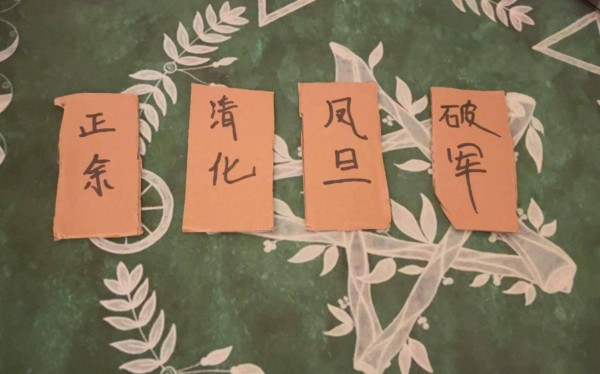 正余
清化
凤旦
破军